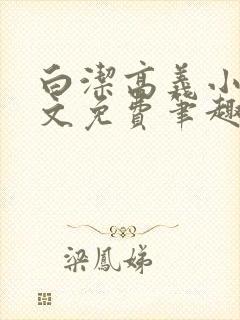 白潔高義小
文免費筆趣
梁鳳娣